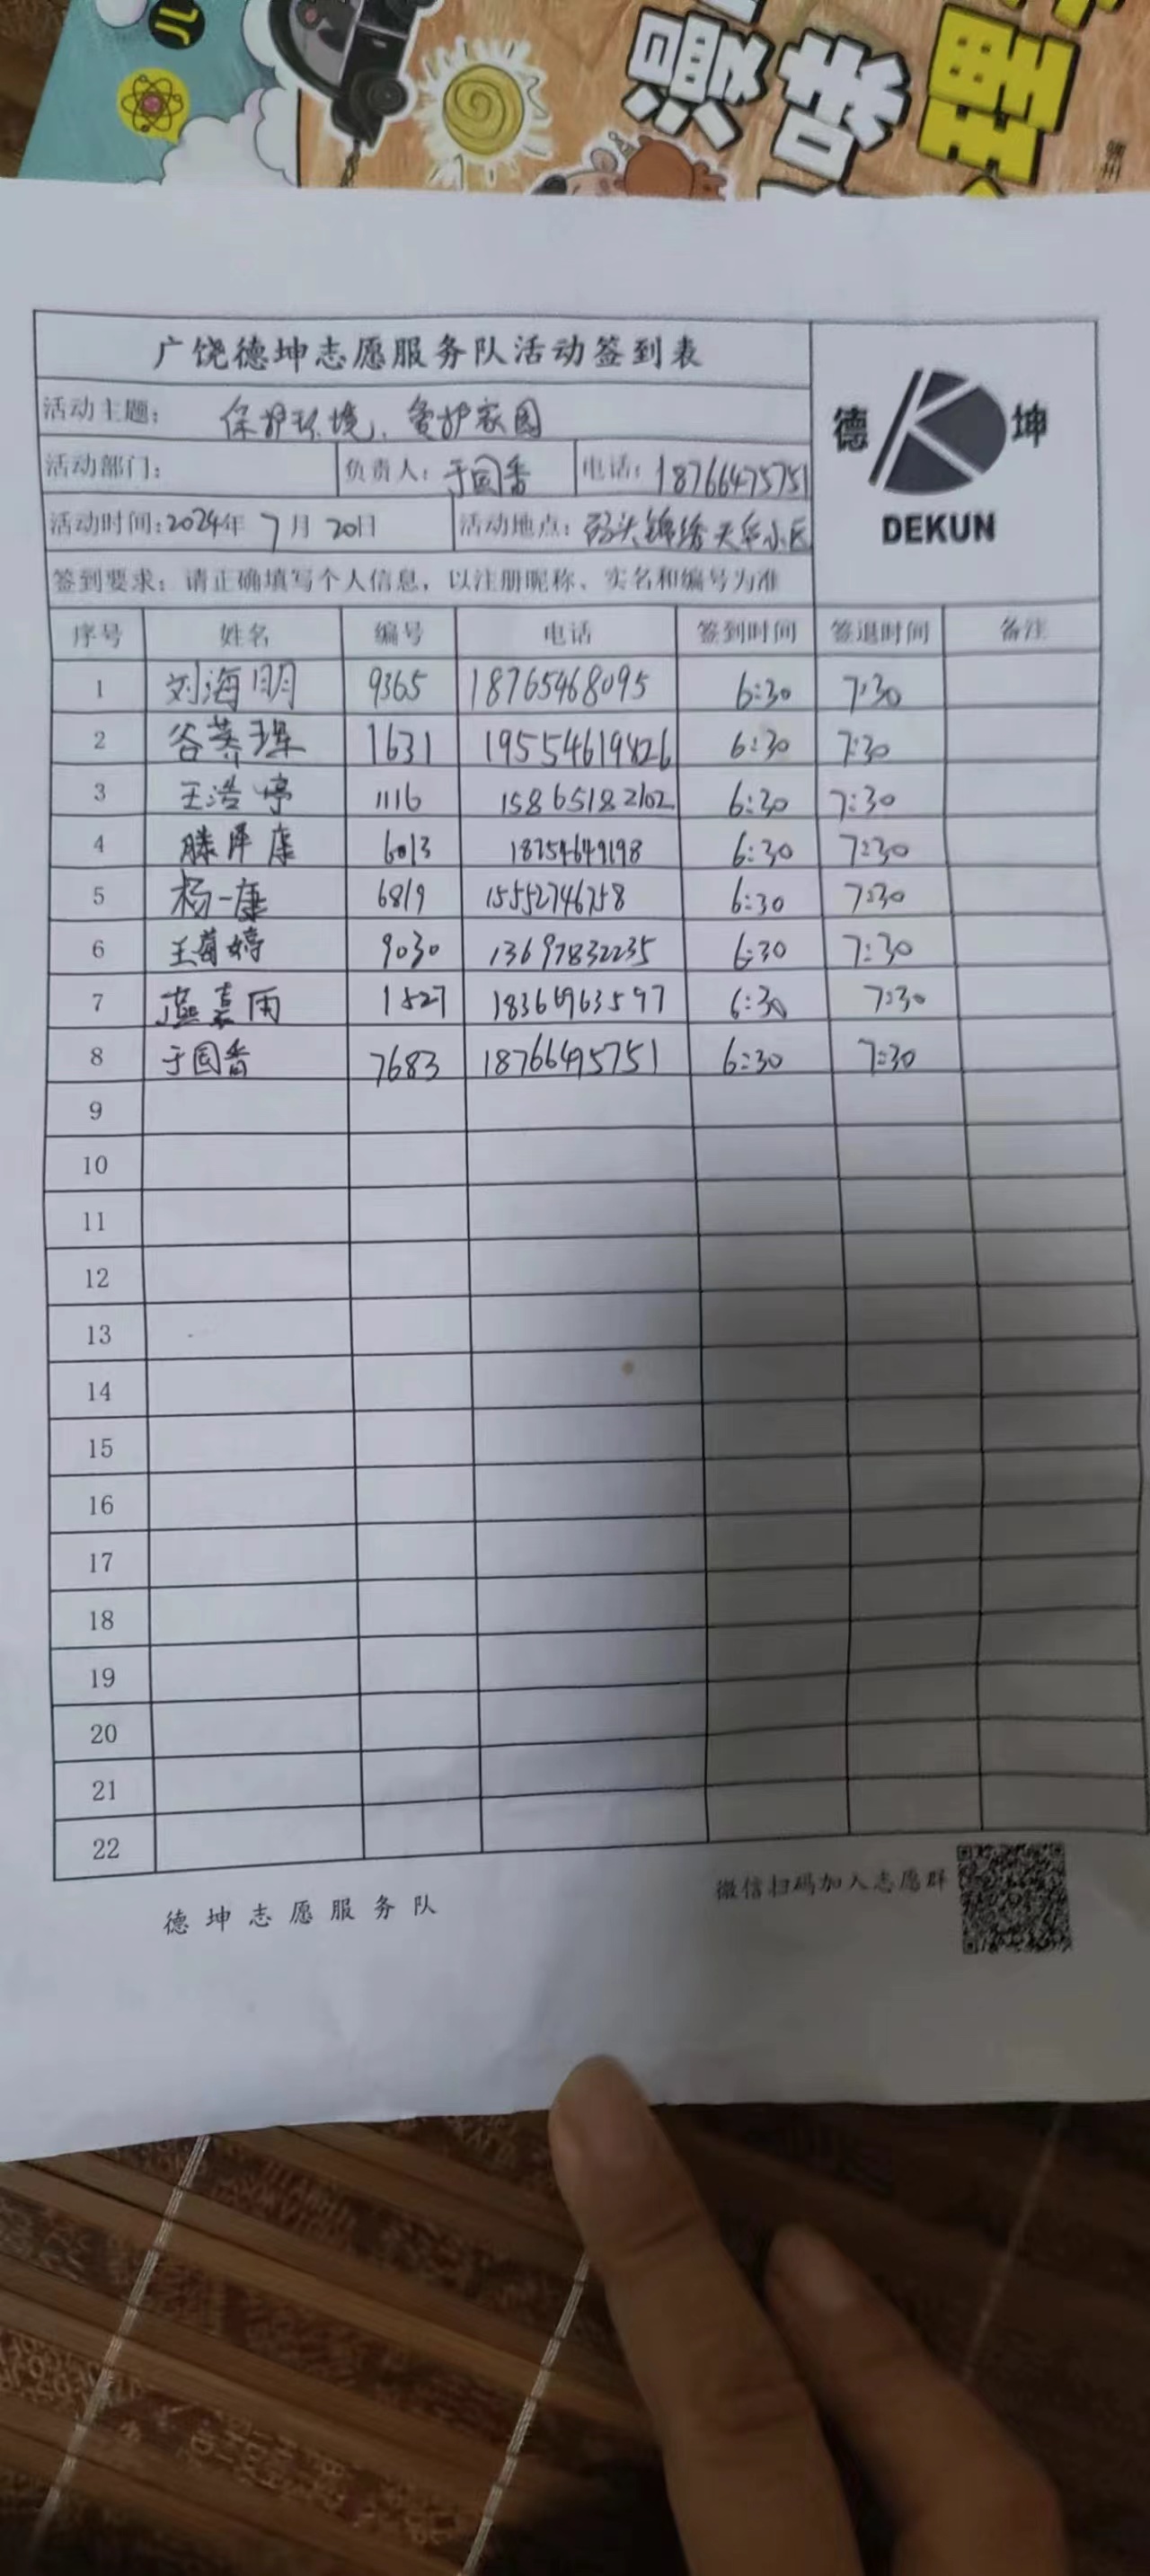 漫
味
理
赣州
广饶德坤志愿服务队活动签到表
德 坤
DEKUN
活动主题: 保护环境、爱护家园
活动部门: 负责人: 于国香 电话: 18766475751
活动时间:2024年 7月 20日 活动地点: 码头锦绣天华小区
签到要求: 请正确填写个人信息, 以注册昵称、实名和编号为准
序号 姓名 编号 电话 签到时间 签退时间 备注
1 刘海明 9365 18765468095 6:30 7:30
2 谷 1631 19554619826 6:30 7:30
3 王浩婷 1116 15865182102 6:30 7:30
4 滕泽康 6013 18754649198 6:30 7:30
5 杨一康 6819 15552746758 6:30 7:30
6 王茵婷 9030 13697832235 6:30 7:30
7 燕嘉雨 1527 18366963597 6:30 7:30
8 于国香 7683 18766495751 6:30 7:30
9
10
11
12
13
14
15
16
17
18
19
20
21
22
德坤志愿服务队
微信扫码加入志愿群